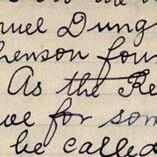 Dung
henson four
As the Re
we for som
be called